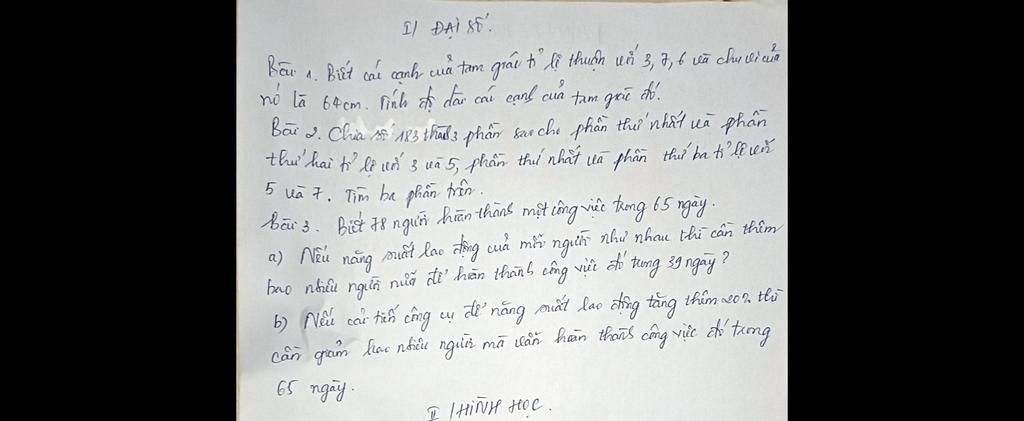 I/ ĐẠI SỐ.
Bài 1. Biết các cạnh của tam giác tỉ lệ thuận với 3, 7, 6 và chu vi của
nó là 64cm. Tính độ dài các cạnh của tam giác đó.
Bài 2. Chia số 183 thành 3 phần sao cho phần thứ nhất và phần
thứ hai tỉ lệ với 3 và 5, phần thứ nhất và phần thứ ba tỉ lệ với
5 và 7. Tìm ba phần trên.
Bài 3. Biết 78 người hoàn thành một công việc trong 65 ngày.
a) Nếu năng suất lao động của mỗi người như nhau thì cần thêm
bao nhiêu người nữa để hoàn thành công việc đó trong 39 ngày?
b) Nếu cải tiến công cụ để năng suất lao động tăng thêm 20% thì
cần giảm bao nhiêu người mà vẫn hoàn thành công việc đó trong
65 ngày.
II / HÌNH HỌC.